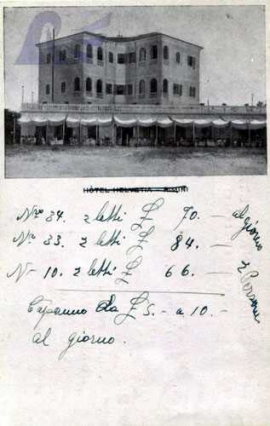 HÔTEL HELVETIA - RIMINI
No 34. 2 letti £ 70. — al giorno
No 33. 2 letti £ 84. —
N- 10. 2 letti £ 66. —
2 persone
Capanno da £ 5. - a 10 -
al giorno.